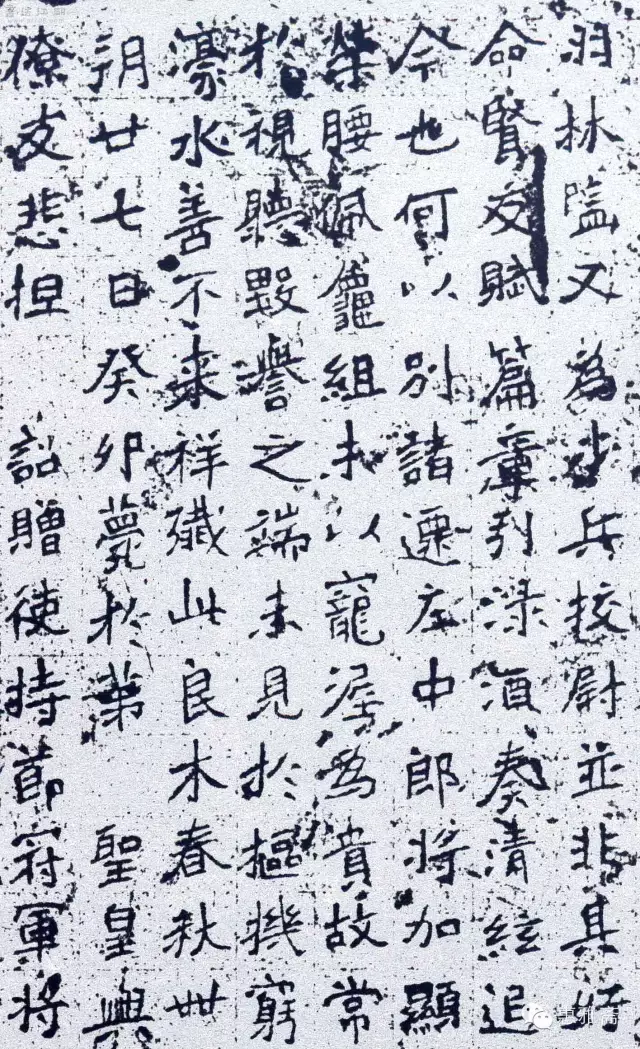 羽林監又為步兵校尉並非其好
命賢友賦篇章列淥酒奏清絃追
今也何以別諸遷左中郎將加顯
榮腰佩龜組以寵渥為貴故常
於視聽毀譽之端未見於樞機窮
濠水善不来祥殲此良木春秋卌
朔廿七日癸卯薨於第 聖皇興
僚友悲怛 詔贈使持節冠軍將